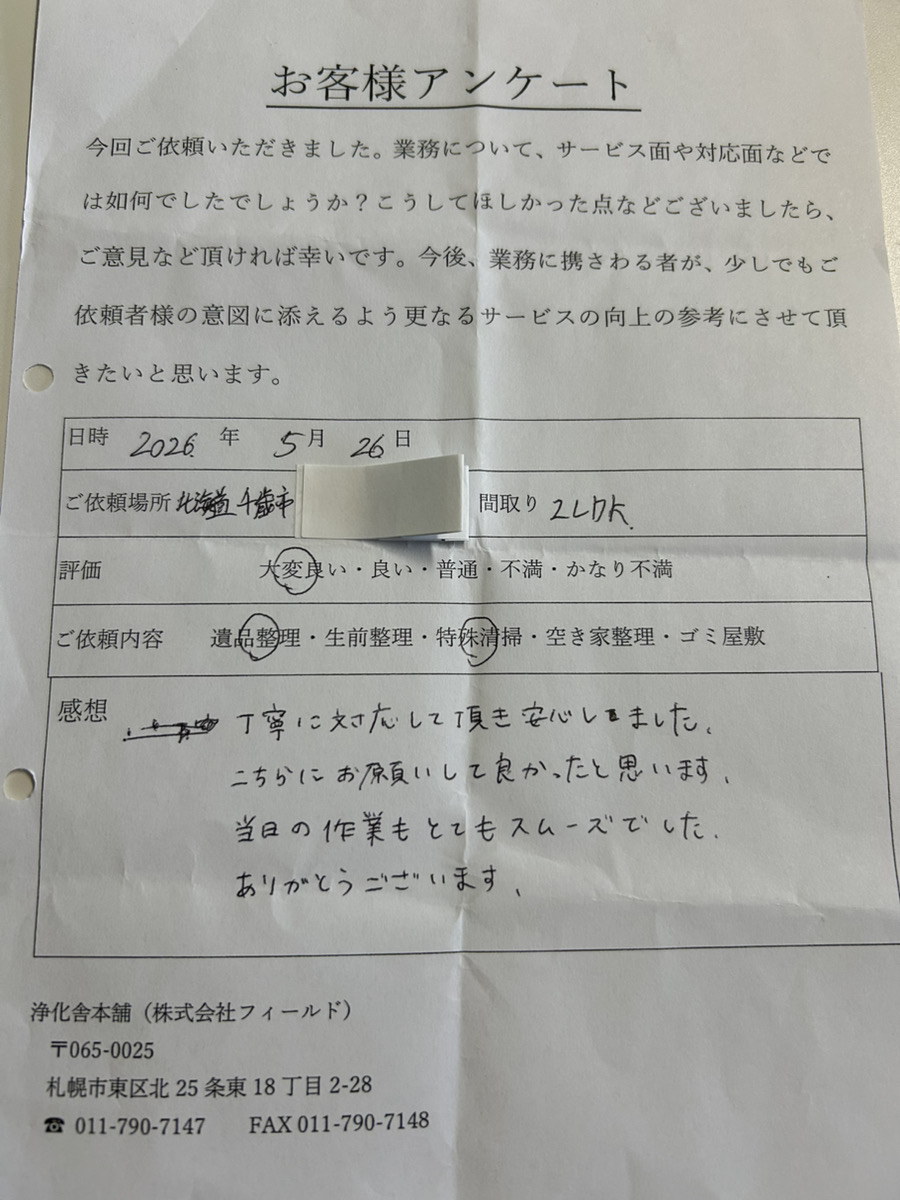 お客様アンケート
今回ご依頼いただきました。業務について、サービス面や対応面などで
は如何でしたでしょうか？こうしてほしかった点などございましたら、
ご意見など頂ければ幸いです。今後、業務に携さわる者が、少しでもご
依頼者様の意図に添えるよう更なるサービスの向上の参考にさせて頂
きたいと思います。
日時 2026 年 5月 26日
ご依頼場所 北海道千歳市 間取り 2LDK
評価 大変良い・良い・普通・不満・かなり不満
ご依頼内容 遺品整理・生前整理・特殊清掃・空き家整理・ゴミ屋敷
感想 丁寧に対応して頂き安心しました。
こちらにお願いして良かったと思います。
当日の作業もとてもスムーズでした。
ありがとうございます。
浄化舎本舗（株式会社フィールド）
〒065-0025
札幌市東区北 25 条東 18 丁目 2-28
☎ 011-790-7147 FAX 011-790-7148